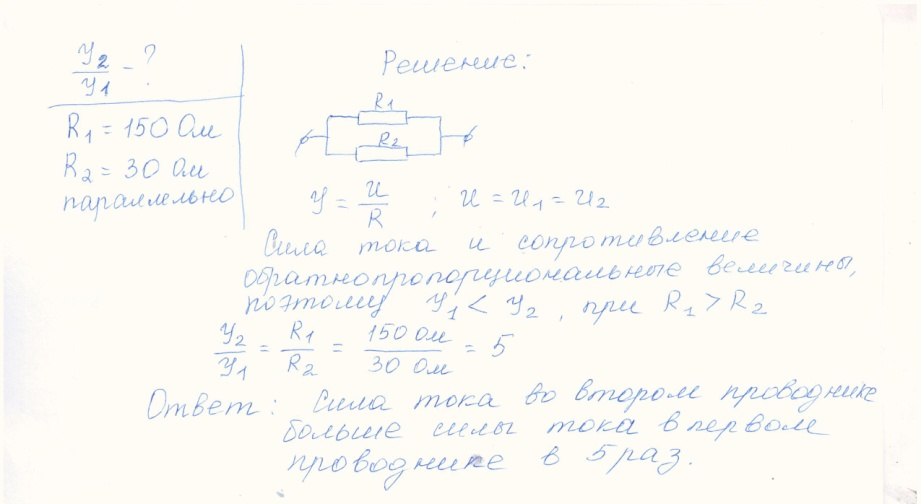 У2/У1 - ?
R1 = 150 Ом
R2 = 30 Ом
параллельно
Решение:
R1
R2
У = u/R ; u = u1 = u2
Сила тока и сопротивление
обратнопропорциональные величины,
поэтому У1 < У2, при R1 > R2
У2/У1 = R1/R2 = 150 Ом/30 Ом = 5
Ответ: Сила тока во втором проводнике
больше силы тока в первом
проводнике в 5 раз.